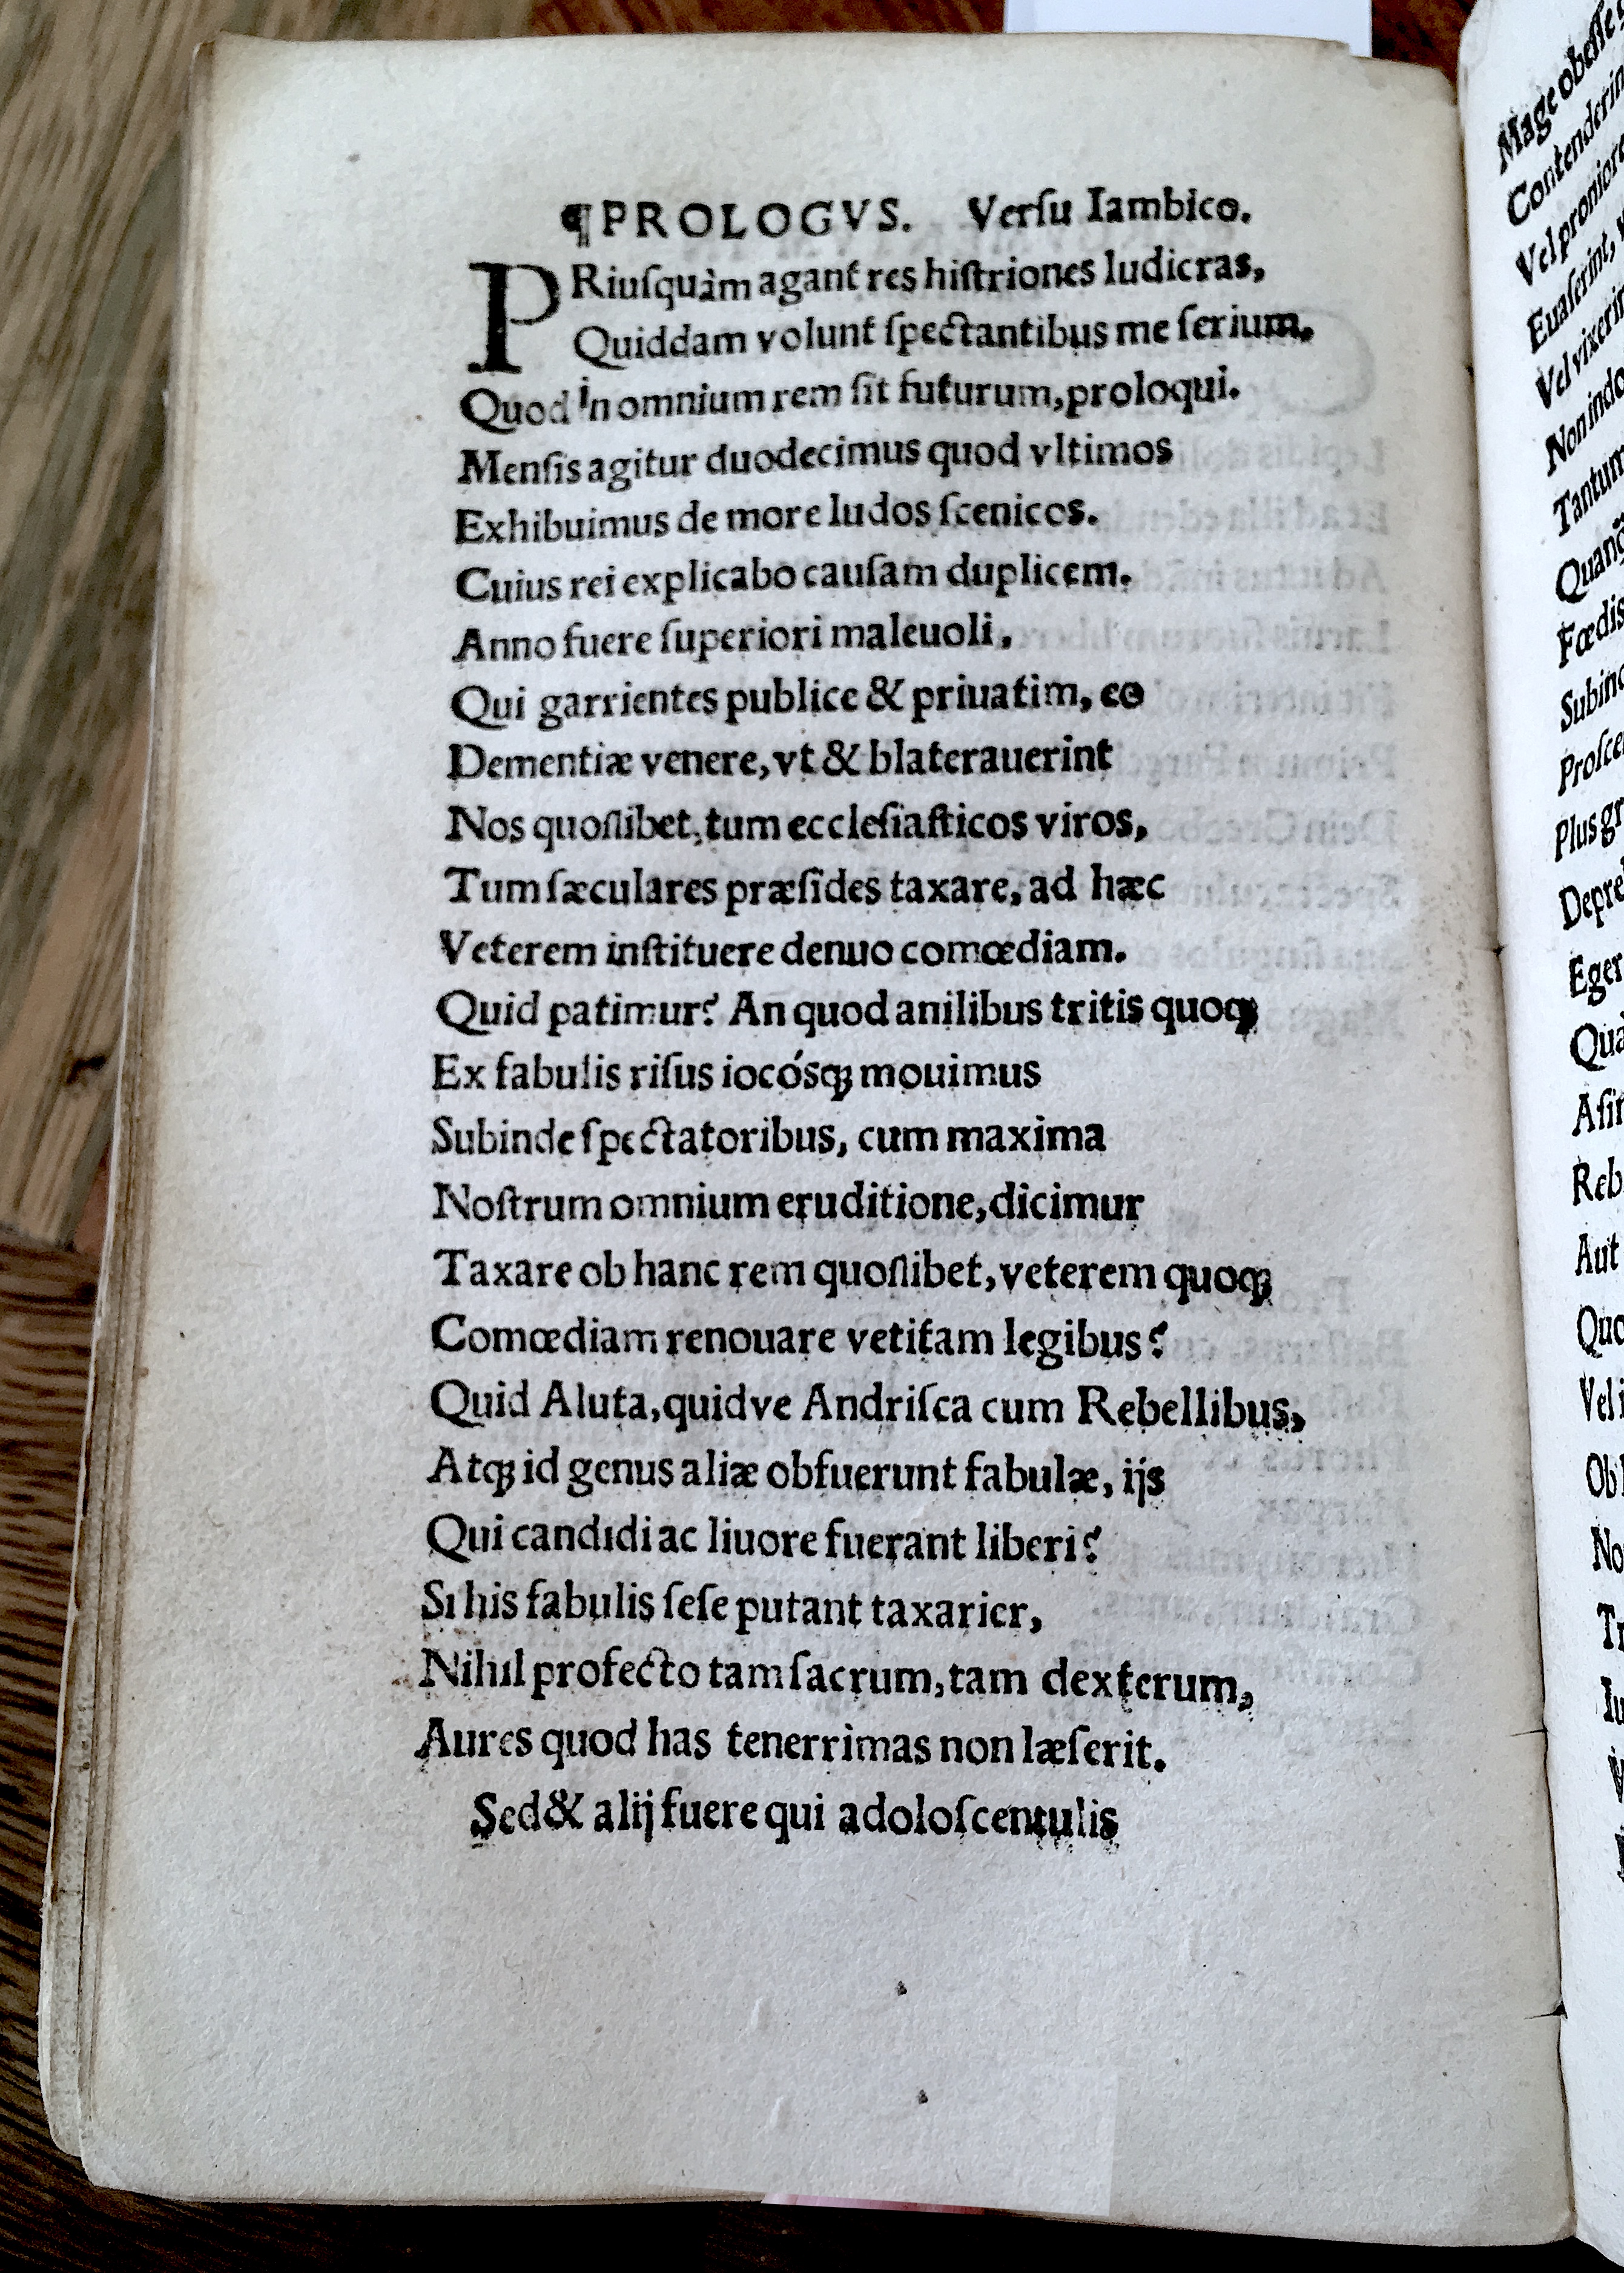 ¶PROLOGVS. Verſu Iambico.
PRiuſquàm agant res hiſtriones ludicras,
Quiddam volunt ſpectantibus me ſerium,
Quod in omnium rem ſit futurum, proloqui.
Menſis agitur duodecimus quod vltimos
Exhibuimus de more ludos ſcenicos.
Cuius rei explicabo cauſam duplicem.
Anno fuere ſuperiori maleuoli,
Qui garrientes publice & priuatim, eo
Dementiæ venere, vt & blaterauerint
Nos quoſlibet, tum eccleſiaſticos viros,
Tum ſæculares præſides taxare, ad hæc
Veterem inſtituere denuo comœdiam.
Quid patimur? An quod anilibus tritis quoqꝫ
Ex fabulis riſus iocósqꝫ mouimus
Subinde ſpectatoribus, cum maxima
Noſtrum omnium eruditione, dicimur
Taxare ob hanc rem quoſlibet, veterem quoqꝫ
Comœdiam renouare vetitam legibus?
Quid Aluta, quidve Andriſca cum Rebellibus,
Atqꝫ id genus aliæ obfuerunt fabulæ, ijs
Qui candidi ac liuore fuerant liberi?
Si his fabulis ſeſe putant taxarier,
Nihil profecto tam ſacrum, tam dexterum,
Aures quod has tenerrimas non læſerit.
Sed & alij fuere qui adoloſcentulis
Mage obeſſe
Vel proniore
Euaſerint,
Non indo
Tantum
Fœdis
Plus gr
Depre
Eger
Qua
Aſin
Reb
Aut
Quo
Vel i
Ob l
No
Tr
Iu